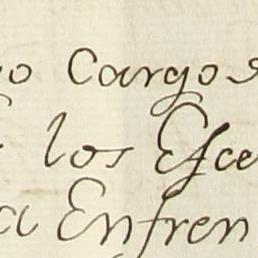 o cargos
los Esce
a Enfren